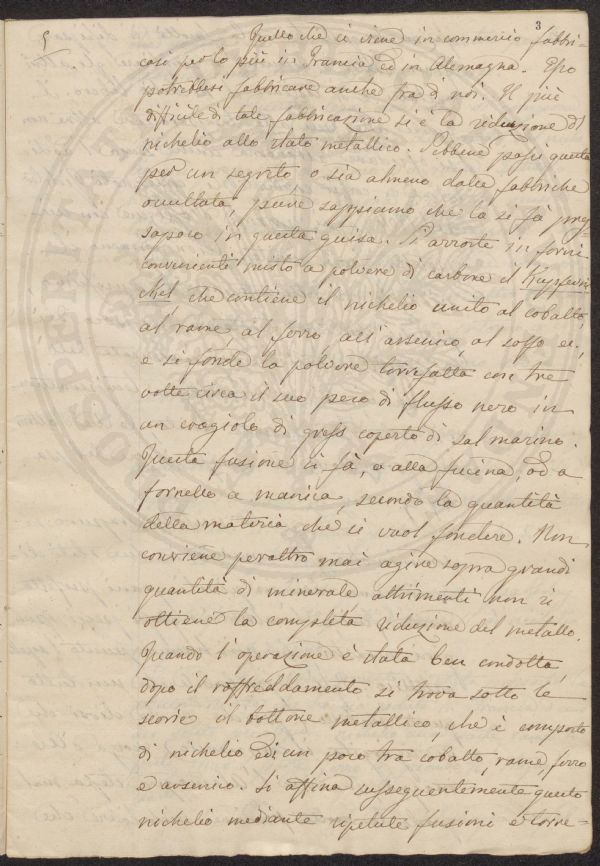 5 3
Quello che ci viene in commercio fabbri-
casi per lo più in Francia ed in Alemagna. Esso
potrebbesi fabbricare anche fra di noi. Il più
difficile di tale fabbricazione si è la riduzione di
nichelio allo stato metallico. Sebbene passi questa
per un segreto o sia almeno dalle fabbriche
occultata, pure sappiamo che la si fà press
sapoco in questa guisa. Si arroste in forni
convenienti misto a polvere di carbone il Kupferni
ckel che contiene il nichelio unito al cobalto,
al rame, al ferro, all'arsenico, al solfo ec;
e si fonde la polvere torrefatta con tre
volte circa il suo peso di flusso nero in
un crogiolo di gress coperto di sal marino.
Questa fusione si fà, o alla fucina, od a
fornello a manica, secondo la quantità
della materia che si vuol fondere. Non
conviene peraltro mai agire sopra grandi
quantità di minerale altrimenti non si
ottiene la completa riduzione del metallo.
Quando l'operazione è stata ben condotta,
dopo il raffreddamento si trova sotto le
scorie il bottone metallico, che è composto
di nichelio ed un poco tra cobalto, rame, ferro
e arsenico. Si affina susseguentemente questo
nichelio mediante ripetute fusioni e torre-
OSPEDAL